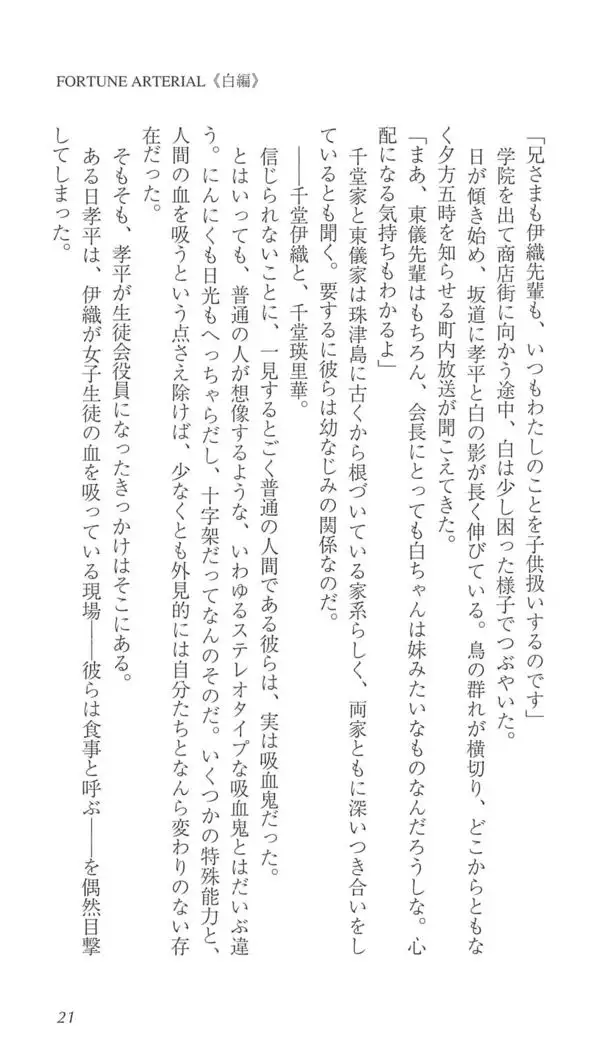 FORTUNE ARTERIAL《白編》
「兄さまも伊織先輩も、いつもわたしのことを子供扱いするのです」
学院を出て商店街に向かう途中、白は少し困った様子でつぶやいた。
日が傾き始め、坂道に孝平と白の影が長く伸びている。鳥の群れが横切り、どこからともな
く夕方五時を知らせる町内放送が聞こえてきた。
「まあ、東儀先輩はもちろん、会長にとっても白ちゃんは妹みたいなものなんだろうしな。心
配になる気持ちもわかるよ」
千堂家と東儀家は珠津島に古くから根づいている家系らしく、両家ともに深いつき合いをし
ているとも聞く。要するに彼らは幼なじみの関係なのだ。
――千堂伊織と、千堂瑛里華。
信じられないことに、一見するとごく普通の人間である彼らは、実は吸血鬼だった。
とはいっても、普通の人が想像するような、いわゆるステレオタイプな吸血鬼とはだいぶ違
う。にんにくも日光もへっちゃらだし、十字架だってなんのそのだ。いくつかの特殊能力と、
人間の血を吸うという点さえ除けば、少なくとも外見的には自分たちとなんら変わりのない存
在だった。
そもそも、孝平が生徒会役員になったきっかけはそこにある。
ある日孝平は、伊織が女子生徒の血を吸っている現場――彼らは食事と呼ぶ――を偶然目撃
してしまった。
21